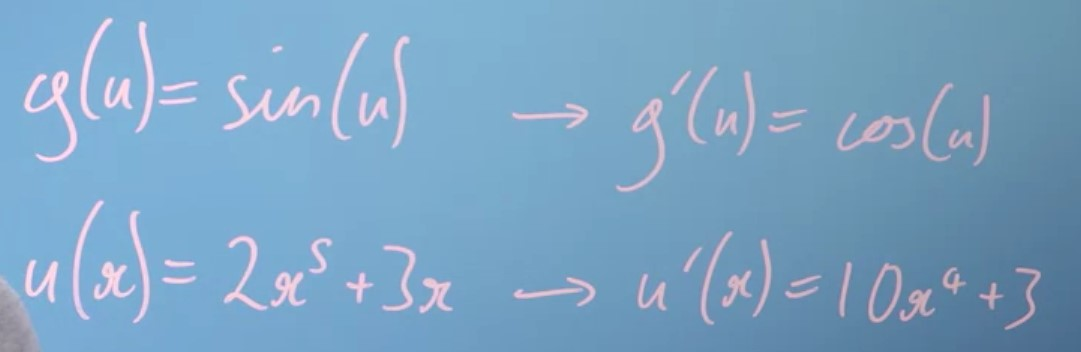 g(u) = sin(u) → g′(u) = cos(u)
u(x) = 2x⁵ + 3x → u′(x) = 10x⁴ + 3